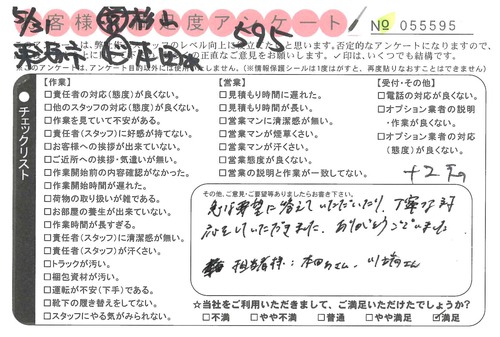 5/31 ㊞杉山
お客様満足度アンケート
№ 055595
595
このアンケートは、弊社スタッフのレベル向上に役立てたいと思います。否定的なアンケートになりますので、
の正直なご意見をお願いします。✓印は、いくつでも結構です。
※このアンケートは、アンケート目的以外には使用いたしません。(※情報保護シールは1度がすと、再度貼りなおすことはできません)
チェックリスト
【作業】
□責任者の対応(態度)が良くない。
□他のスタッフの対応(態度)が良くない。
□作業を見ていて不安がある。
□責任者(スタッフ)に好感が持てない。
□お客様への挨拶が出来ていない。
□ご近所への挨拶・気遣いが無い。
□作業開始前の内容確認がなかった。
□作業開始時間が遅れた。
□荷物の取り扱いが雑である。
□お部屋の養生が出来ていない。
□作業時間が長すぎる。
□責任者(スタッフ)に清潔感が無い。
□責任者(スタッフ)が汗くさい。
□トラックが汚い。
□梱包資材が汚い。
□運転が不安(下手)である。
□靴下の履き替えをしてない。
□スタッフにやる気がみられない。
【営業】
□見積もり時間に遅れた。
□見積もり時間が長い。
□営業マンに清潔感が無い。
□営業マンが煙草くさい。
□営業マンが汗くさい。
□営業態度が良くない。
□営業の説明と作業が一致してない。
【受付・その他】
□電話の対応が良くない。
□オプション業者の説明
・作業が良くない。
□オプション業者の対応
(態度)が良くない。
その他、ご意見・ご要望等ありましたらお書き下さい。
急な希望に答えていただいたり、丁寧な対
応をしていただきました。ありがとうございました
担当者様：本田さん、川崎さん
☆当社をご利用いただきまして、ご満足いただけたでしょうか?
□不満 □やや不満 □普通 □やや満足 ☑満足